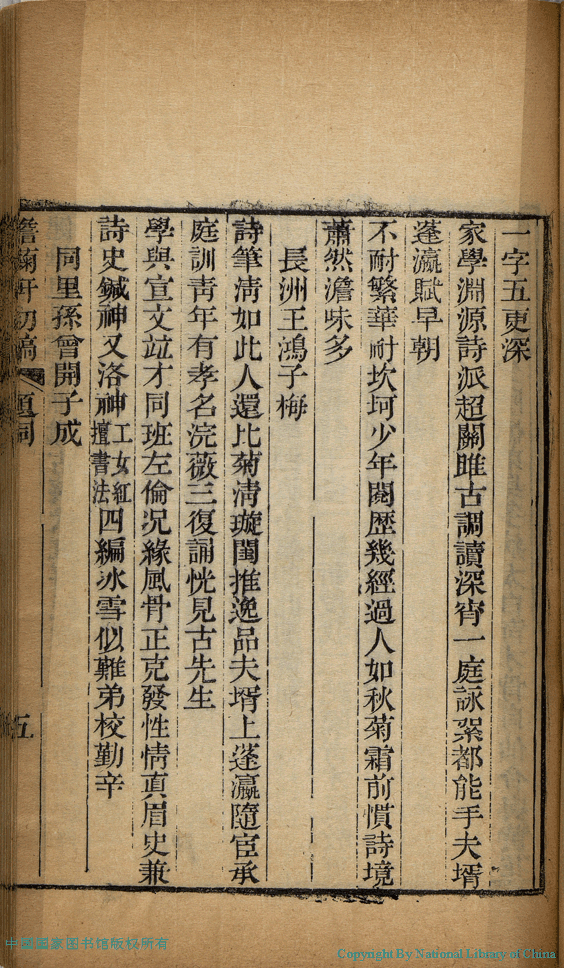 一字五更深
家學淵源詩派超關雎古調讀深宵一庭詠絮都能手夫壻
蓬瀛賦早朝
不耐繁華耐坎坷少年閱歷幾經過人如秋菊霜前慣詩境
蕭然澹味多
長洲王鴻子梅
詩筆清如此人還比菊清璇閨推逸品夫壻上蓬瀛隨宦承
庭訓靑年有孝名浣薇三復誦恍見古先生
學與宣文竝才同班左倫況緣風骨正克發性情眞眉史兼
詩史鍼神又洛神工女紅擅書法四編冰雪似難弟校勤辛
同里孫曾開子成
簷蔔軒初稿 題詞 五
中國國家图书馆版权所有
Copyright By National Library of China